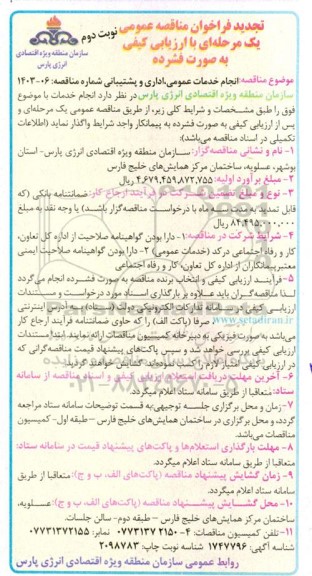 تجدید فراخوان مناقصه عمومی
نوبت دوم
یک مرحله‌ای با ارزیابی کیفی
به صورت فشرده
سازمان منطقه ویژه اقتصادی
انرژی پارس
موضوع مناقصه: انجام خدمات عمومی، اداری و پشتیبانی شماره مناقصه: ۰۶-۱۴۰۳
سازمان منطقه ویژه اقتصادی انرژی پارس در نظر دارد انجام خدمات با موضوع
فوق را طبق مشخصات و شرایط کلی زیر، از طریق مناقصه عمومی یک مرحله‌ای و
پس از ارزیابی کیفی به صورت فشرده به پیمانکار واجد شرایط واگذار نماید (اطلاعات
تکمیلی در اسناد مناقصه می‌باشد):
۱- نام و نشانی مناقصه‌گزار: سازمان منطقه ویژه اقتصادی انرژی پارس- استان
بوشهر، عسلویه، ساختمان مرکز همایش‌های خلیج فارس
۲- مبلغ برآورد اولیه: ۴,۶۷۹,۴۵۹,۸۷۲,۷۵۵ ریال
۳- نوع و مبلغ تضمین شرکت در فرآیند ارجاع کار: ضمانتنامه بانکی (که
قابل تمدید به مدت سه ماه با درخواست مناقصه‌گزار باشد) یا وجه نقد به مبلغ
ریال
۴- شرایط شرکت در مناقصه: ۱- دارا بودن گواهینامه صلاحیت از اداره کل تعاون،
کار و رفاه اجتماعی درکد (خدمات عمومی) ۲- دارا بودن گواهینامه صلاحیت ایمنی
معتبر پیمانکاران از اداره کل تعاون، کار و رفاه اجتماعی
۵- فرآیند ارزیابی کیفی و انتخاب برنده مناقصه به صورت فشرده انجام می‌گردد
لذا مناقصه‌گران باید علاوه بر بارگذاری اسناد مورد درخواست و مستندات
ارزیابی کیفی در سامانه تدارکات الکترونیکی دولت (ستاد) به آدرس اینترنتی
www.setadiran.ir صرفا (پاکت الف) را که حاوی ضمانتنامه فرآیند ارجاع کار
می‌باشد به صورت فیزیکی به دبیرخانه کمیسیون مناقصات ارائه نمایند. ابتدا مستندات
ارزیابی کیفی بررسی خواهد شد و سپس پاکت‌های پیشنهاد قیمت مناقصه‌گرانی که
در ارزیابی کیفی امتیاز لازم را کسب نموده‌اند گشایش خواهند گردید.
۶- آخرین مهلت دریافت استعلام ارزیابی کیفی و اسناد مناقصه از سامانه
ستاد: متعاقبا از طریق سامانه ستاد اعلام میگردد.
۷- زمان و محل برگزاری جلسه توجیهی: به قسمت توضیحات سامانه ستاد مراجعه
گردد، و محل برگزاری در ساختمان همایش‌های خلیج فارس – طبقه اول- کمیسیون
مناقصات می‌باشد.
۸- مهلت بارگذاری استعلام‌ها و پاکت‌های پیشنهاد قیمت در سامانه ستاد:
متعاقبا از طریق سامانه ستاد اعلام میگردد.
۹- زمان گشایش پیشنهاد مناقصه (پاکت‌های الف، ب و ج): متعاقبا از طریق
سامانه ستاد اعلام میگردد.
۱۰- محل گشایش پیشنهاد مناقصه (پاکت‌های الف، ب و ج): عسلویه،
ساختمان مرکز همایش‌های خلیج فارس – طبقه دوم- سالن جلسات.
۱۱- تلفن کمیسیون مناقصات: ۴-۰۷۷۳۱۳۷۲۱۵۰ نمابر: ۰۷۷۳۱۳۷۲۱۵۵
شناسه آگهی: ۱۷۴۷۷۹۶ شناسه نوبت چاپ: ۲۰۹۸۷۸۳
روابط عمومی سازمان منطقه ویژه اقتصادی انرژی پارس